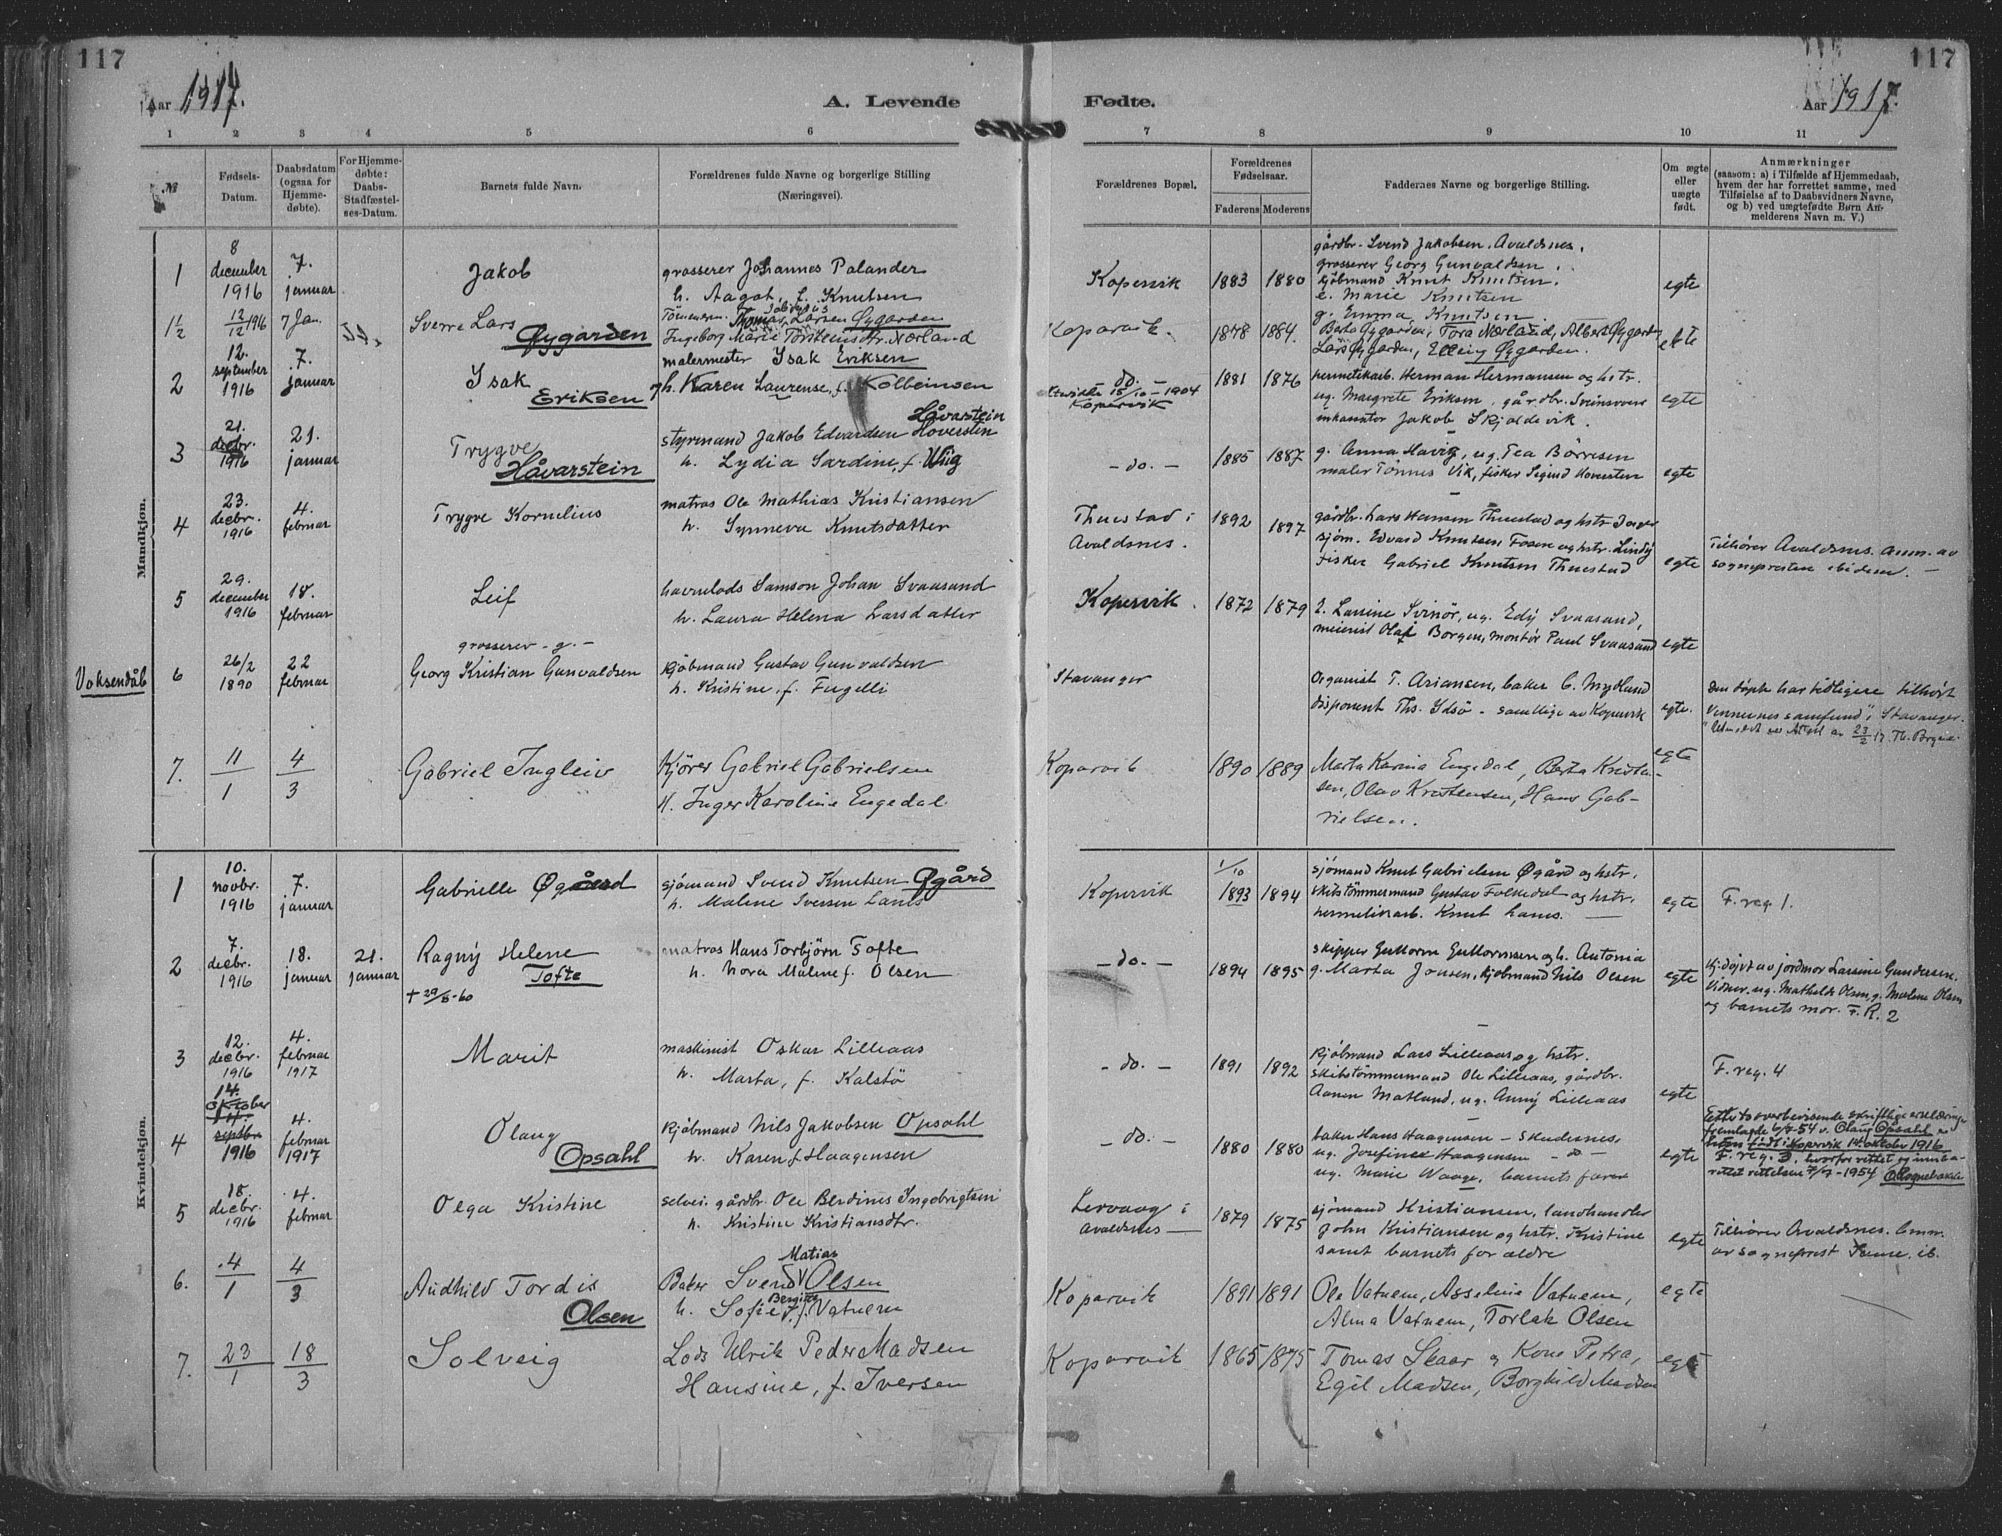 117
Aar 1917.
A. Levende
1 2 3 4 5 6
№
Fødsels-Datum.
Daabsdatum (ogsaa for Hjemme-døbte).
For Hjemme-døbte: Daabs-Stadfæstel-ses-Datum.
Barnets fulde Navn.
Forældrenes fulde Navne og borgerlige Stilling (Næringsvei).
Mandkjøn.
1 8 december 1916 7. januar Jakob grosserer Johannes Palander
h. Aagot, f. Knutsen
1½ 12/12 1916 7 Jan. Sverre Lars Øygarden Thomas Larsen Øygarden
Ingeborg Marie Torsteinsdtr. Norland
2 12. september 1916 7. januar Isak Eriksen malermester Isak Eriksen
h. Karen Laurense, f. Kolbeinsen
3 21. decbr. 1916 21. januar Trygve Håvarstein styrmand Jakob Edvardsen Hoversten
Håvarstein
h. Lydia Sardine, f. Wiig
4 23. decbr. 1916 4. februar Trygve Kornelius matros Ole Mathias Kristiansen
h. Synneva Knutsdatter
5 29. december 1916 18. februar Leif havnelods Samson Johan Svaasand
h. Laura Helena Larsdatter
Voksendåb 6 26/2 1890 22 februar grosserer - g. - Georg Kristian Gunvaldsen kjøbmand Gustav Gunvaldsen
h. Kristine, f. Fugelli
7. 11/1 4/3 Gabriel Ingleiv Kjører Gabriel Gabrielsen
H. Inger Karoline Engedal
Kvindekjøn.
1 10. novbr. 1916 7. januar Gabrielle Øgård sjømand Svend Knutsen Øgård
h. Malene Iversen Lanes
2 7. decbr. 1916 18. januar 21. januar Ragny Helene Tofte matros Hans Torbjørn Tofte
† 29/8-60 h. Nora Malene f. Olsen
3 12. decbr. 1916 4. februar 1917 Marit maskinist Oskar Lilleaas
h. Marta, f. Kalstø
4 14. oktober 14. septbr. 1916 4. februar 1917 Olaug Opsahl kjøbmand Nils Jakobsen Opsahl
h. Karen f. Haagensen
5 18. decbr. 1916 4. februar Olga Kristine selvei. gårdbr. Ole Berdines Ingebrigtsen
h. Kristine Kristiansdtr.
6. 4/1 4/3 Audhild Tordis Olsen Baker Svend Matias Olsen
h. Sofie Bergitte f. Vatnem
7. 23/1 18/3 Solveig Lods Ulrik Peder Madsen
Hansine, f. Iversen
117
Fødte.
Aar 1917.
7 8 9 10 11
Forældrenes Bopæl.
Forældrenes Fødselsaar.
Faderens Moderens
Faddernes Navne og borgerlige Stilling.
Om ægte eller uægte født.
Anmærkninger
(saasom: a) i Tilfælde af Hjemmedaab,
hvem der har forrettet samme, med
Tilføielse af to Daabsvidners Navne,
og b) ved uægtefødte Børn An-
melderens Navn m. V.)
gårdbr. Svend Jakobsen. Avaldsnes.
grosserer Georg Gunvaldsen.
Kopervik 1883 1880 kjøbmand Knut Knutsen. egte
e. Marie Knutsen
g. Emma Knutsen
Koparvik. 1878 1884. Berta Øygarden, Tora Norland, Albert Øygarden ekte
Lars Øygarden, Elling Øygarden.
do. 1881 1876 hermetikarb. Herman Hermansen og hstr.
15/10 - 1904 Kopervik ug. Margrete Eriksen, gårdbr. egte
inkassator Jakob Skjoldevik.
- do. - 1885 1887 g. Anna Havig, ug. Tea Børresen
maler Tønnes Vik, fisker Sigurd Hoversten egte
Thuestad i Avaldsnes. 1892 1897 gårdbr. Lars Hansen Thuestad og hstr. Inger
sjøm. Edvard Knutsen Fosen og hstr. Lindy
fisker Gabriel Knutsen Thuestad egte Tilhører Avaldsnes. anm. av
sognepresten ibidem. -
Kopervik. 1872 1879 e. Lasine Svinør, ug. Edy Svaasand,
meierist Olaf Borgen, montør Paul Svaasand egte
Stavanger Organist T. Ariansen, baker C. Mydland
disponent Ths. Idsø - samtlige av Kopervik egte. Den døpte har tidligere tilhørt
Vennernes samfund" i Stavanger.
23/2 17.
Koparvik 1890 1889 Marta Karina Engedal, Berta Kristen- egte
sen, Olav Kristensen, Hans Gab-
rielsen.
Kopervik 1/10 1893 1894 sjømand Knut Gabrielsen Øgård og hstr.
skibstømmermand Gustav Folkedal og hstr.
hermetikarb. Knut Lanes. egte F. reg. 1.
- do. - 1894 1895 skipper Guttorm Guttormsen og h. Antonia
g. Marta Jonsen, kjøbmand Nils Olsen egte Hj. døpt av jordmor Larsine Gundersen.
Vidner. ug. Mathilde Olsen, g. Malene Olsen
og barnets mor. F. R. 2
- do. - 1891 1892 kjøbmand Lars Lilleaas og hstr.
skibstømmermand Ole Lilleaas, gårdbr.
Aanen Matland, ug. Anny Lilleaas egte F. reg. 4
- do. - 1880 1880 baker Hans Haagensen - Skudesnes
ug. Josefine Haagensen - do -
ug. Marie Waage, barnets farer egte Etter to overbevisende skriftlige erklæringer
fremlagde 6/7-54 v. Olaug Opsahl er
født i Kopervik 14. oktober 1916
F. reg. 3. hvorfor rettet og
rettet rettelsen 7/7-1954
Lervaag i Avaldsnes 1879 1875 sjømand Kristiansen, landhandler
John Kristiansen og hstr. Kristine
samt barnets forældre egte Tilhører Avaldsnes. Anm.
av sogneprest ib.
Koparvik 1891 1891 Ole Vatnem, Asseline Vatnem, egte
Alma Vatnem, Torlak Olsen
Koparvik 1865 1875 Tomas Skaar og Kone Petra, egte
Egil Madsen, Borghild Madsen